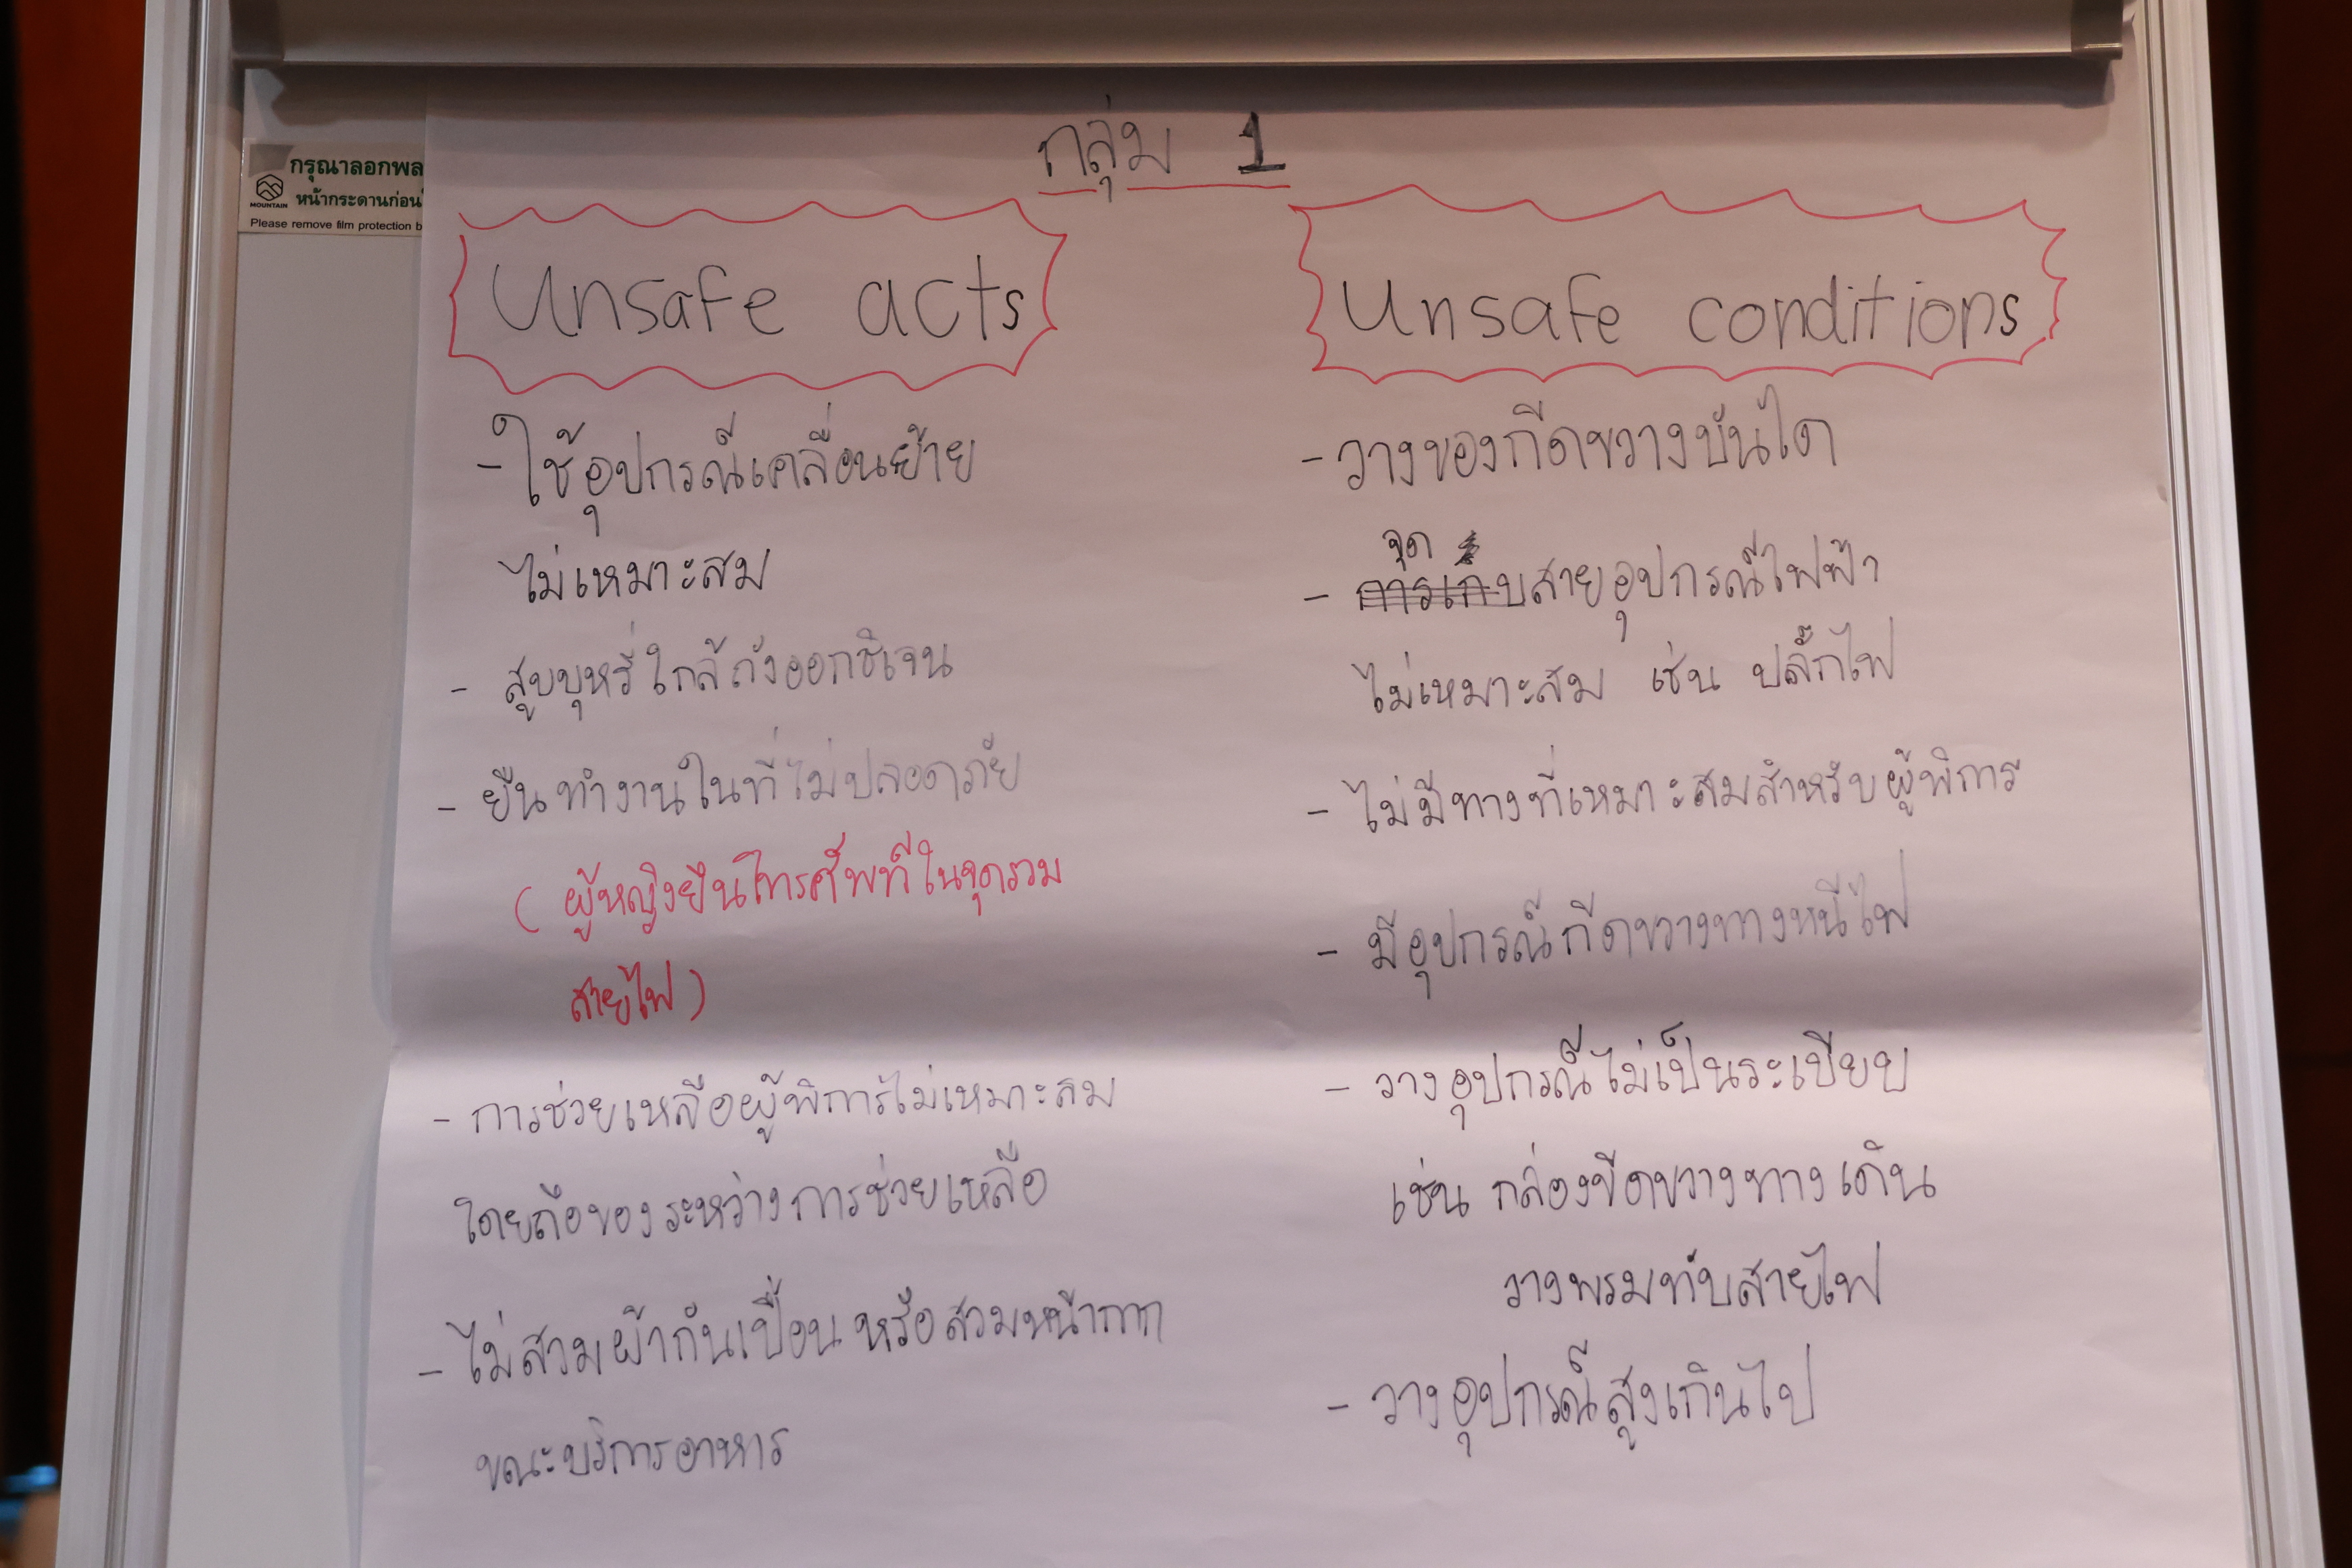 กลุ่ม 1
กรุณาลอกพล
หน้ากระดานก่อน
MOUNTAIN
Please remove film protection b
Unsafe acts
- ใช้อุปกรณ์เคลื่อนย้าย
ไม่เหมาะสม
- สูบบุหรี่ใกล้ถังออกซิเจน
- ยืนทำงานในที่ไม่ปลอดภัย
( ผู้หญิงยืนโทรศัพท์ในจุดรวม
สายไฟ )
- การช่วยเหลือผู้พิการไม่เหมาะสม
โดยถือของระหว่างการช่วยเหลือ
- ไม่สวมผ้ากันเปื้อน หรือสวมหน้ากาก
ขณะบริการอาหาร
Unsafe conditions
- วางของกีดขวางบันได
จุด
- การเก็บสายอุปกรณ์ไฟฟ้า
ไม่เหมาะสม เช่น ปลั๊กไฟ
- ไม่มีทางที่เหมาะสมสำหรับผู้พิการ
- มีอุปกรณ์กีดขวางทางหนีไฟ
- วางอุปกรณ์ไม่เป็นระเบียบ
เช่น กล่องขีดขวางทางเดิน
วางพรมทับสายไฟ
- วางอุปกรณ์สูงเกินไป